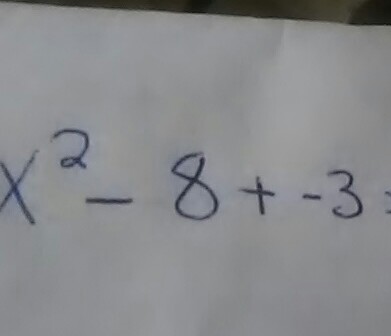 x² - 8 + -3 =